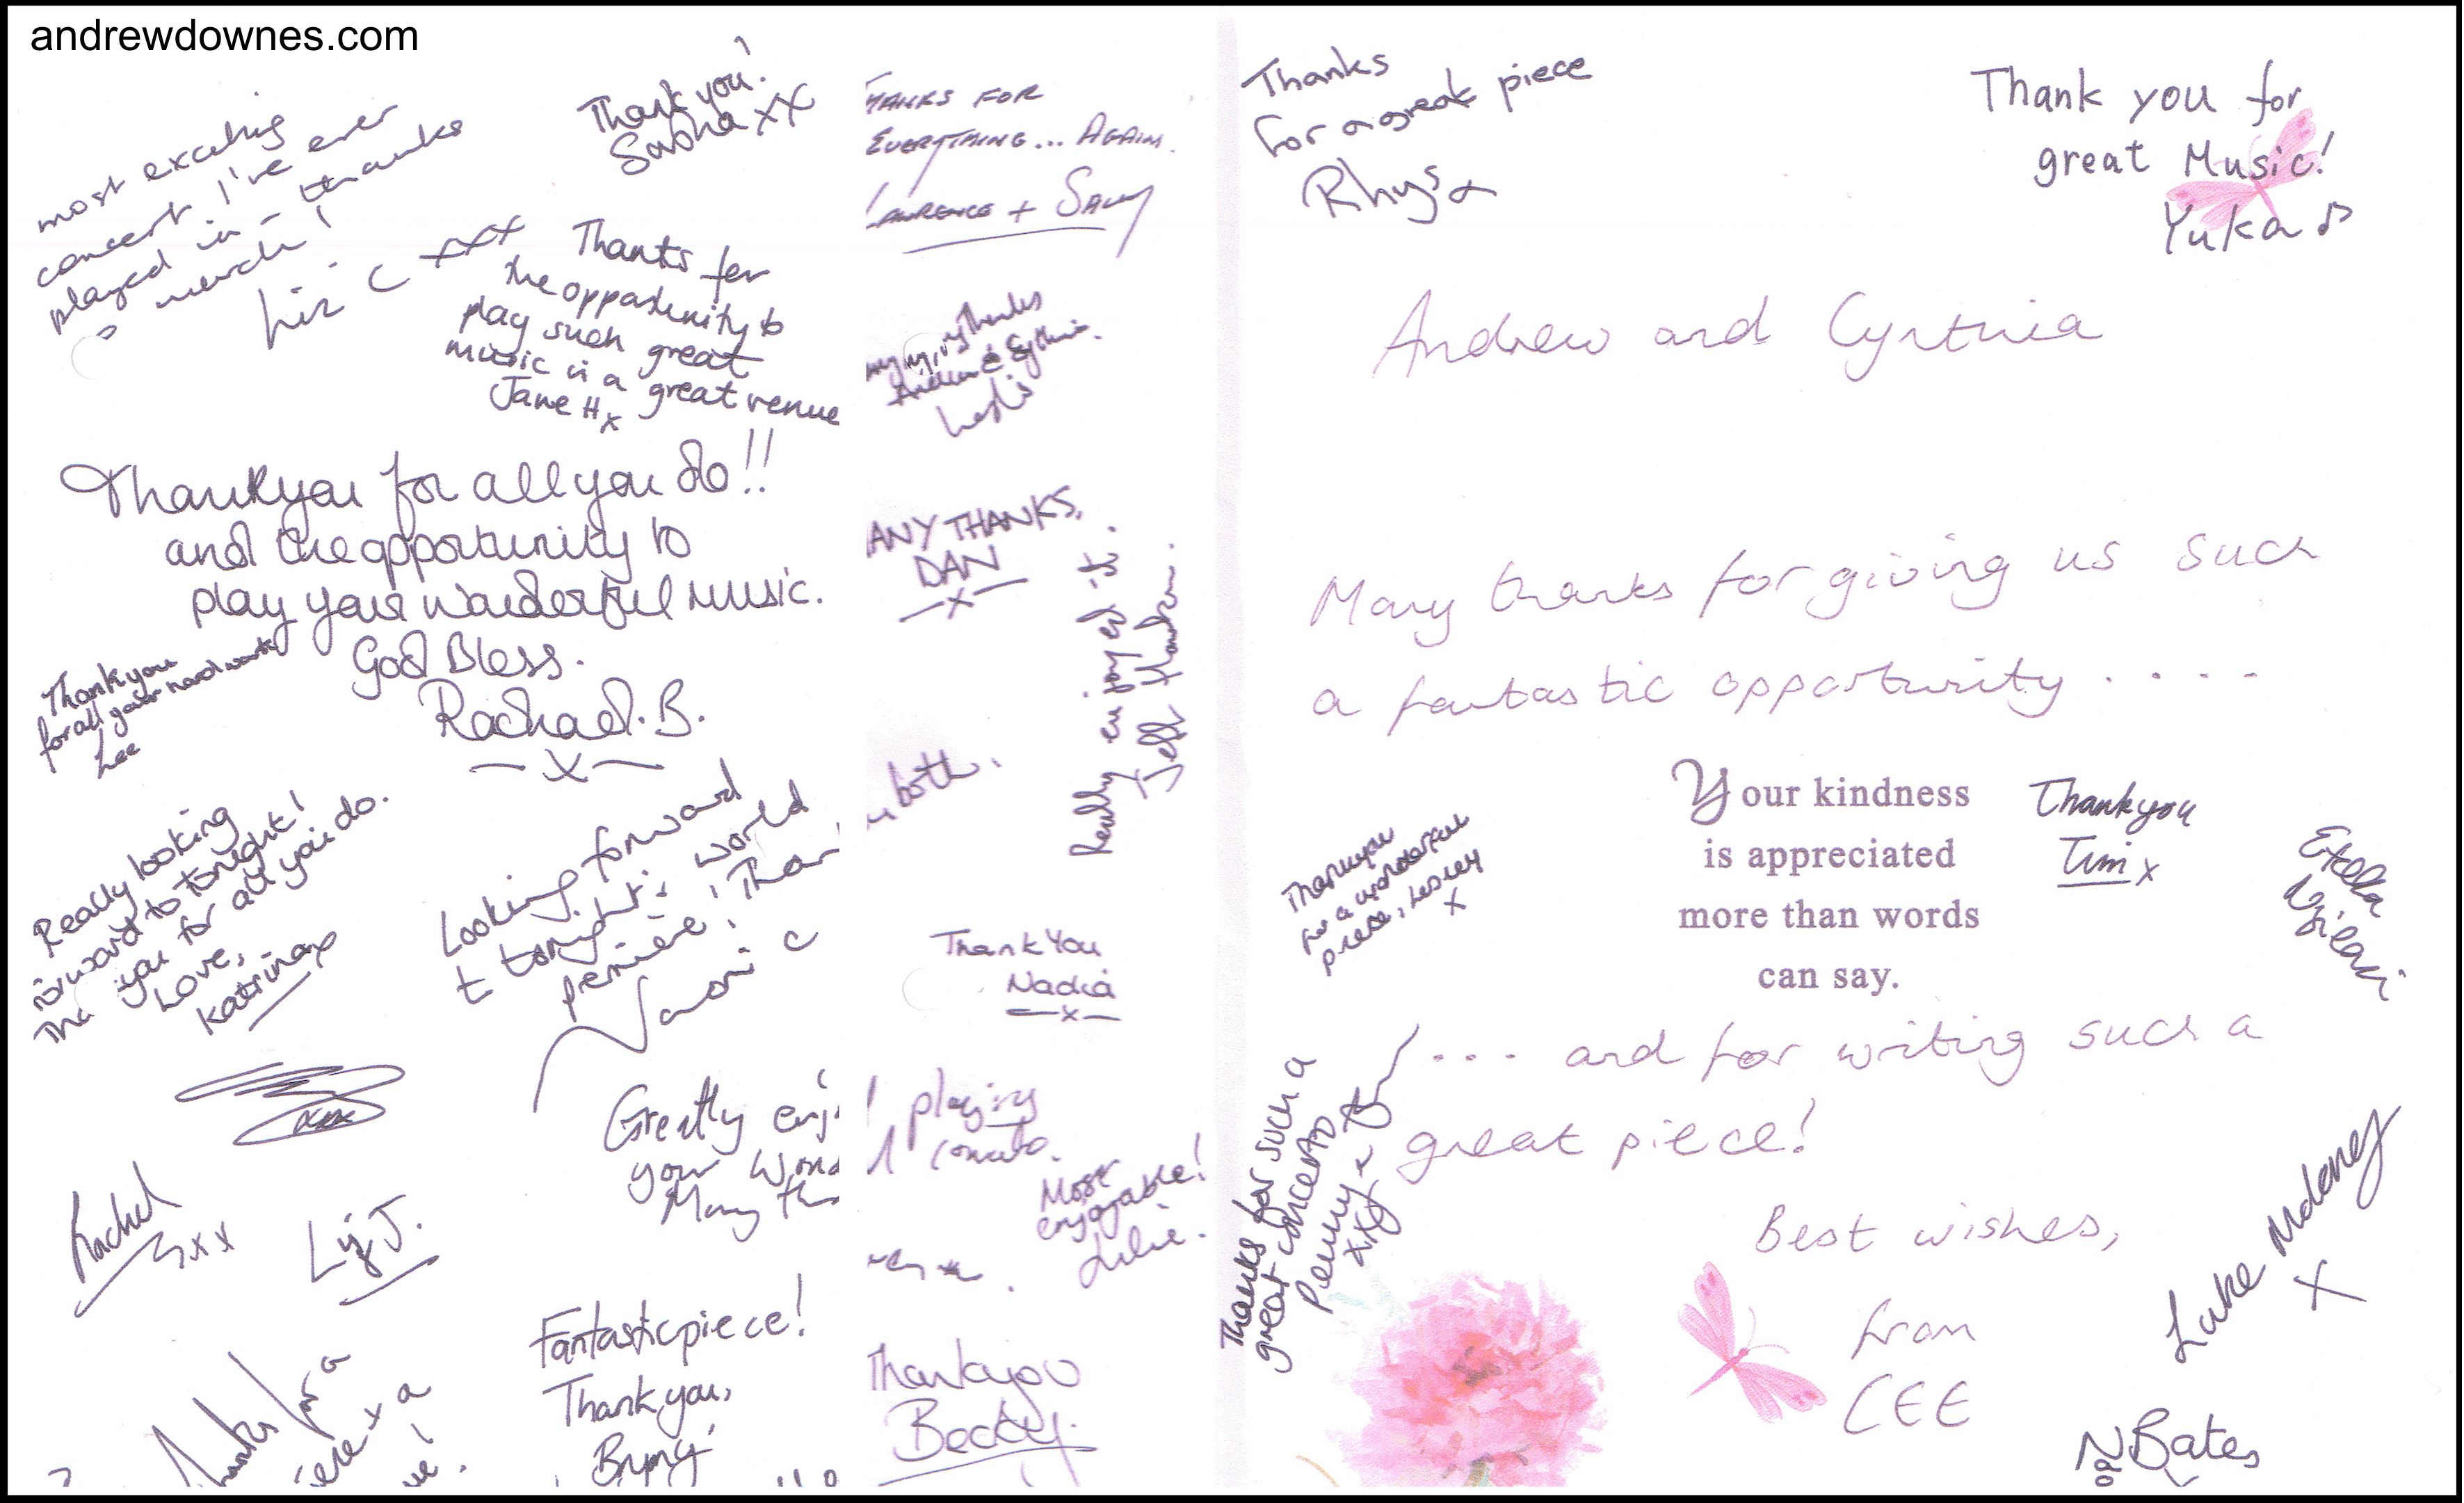 andrewdownes.com
most exciting
concert I've ever
played in - thanks
so much!
Liz C xxx
Thank you!
Sasha xx
Thanks for
the opportunity to
play such great
music in a great venue
Jane H x
Thankyou for all you do!!
and the opportunity to
play your wonderful music.
God Bless.
Rachael. B.
x
Thank you
for all your hard work
Lee
Really looking
forward to tonight!
you for all you do.
Love,
Katrina x
Looking forward
to tonight's world
Naomi C
xxx
Rachel
xxx
Liz J.
Greatly
your
Many
Fantastic piece!
Thank you,
Bryony
Thanks for a
THANKS FOR
EVERYTHING... AGAIN.
LAURENCE + SALLY
thanks
Andrew & Cynthia.
ANY THANKS,
DAN
x
Really enjoyed it.
Jeff
both.
Thank You
Nadia
x
playing
Most
enjoyable!
Julie.
Thankyou
Becky.
Thanks
for a great piece
Rhys x
Thank you for
great Music!
Yuka
Andrew and Cynthia
Many thanks for giving us such
a fantastic opportunity ....
Thankyou
for a wonderful
piece, Lesley
x
Your kindness
is appreciated
more than words
can say.
Thankyou
Tim x
... and for writing such a
great piece!
Thanks for such a
great concerto
Penny x
Best wishes,
from
CEE
Luke Moloney
x
Bates